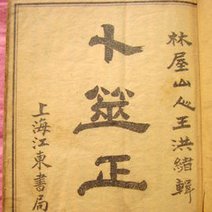 林屋山人王洪緒輯
卜筮正
上海江東書局